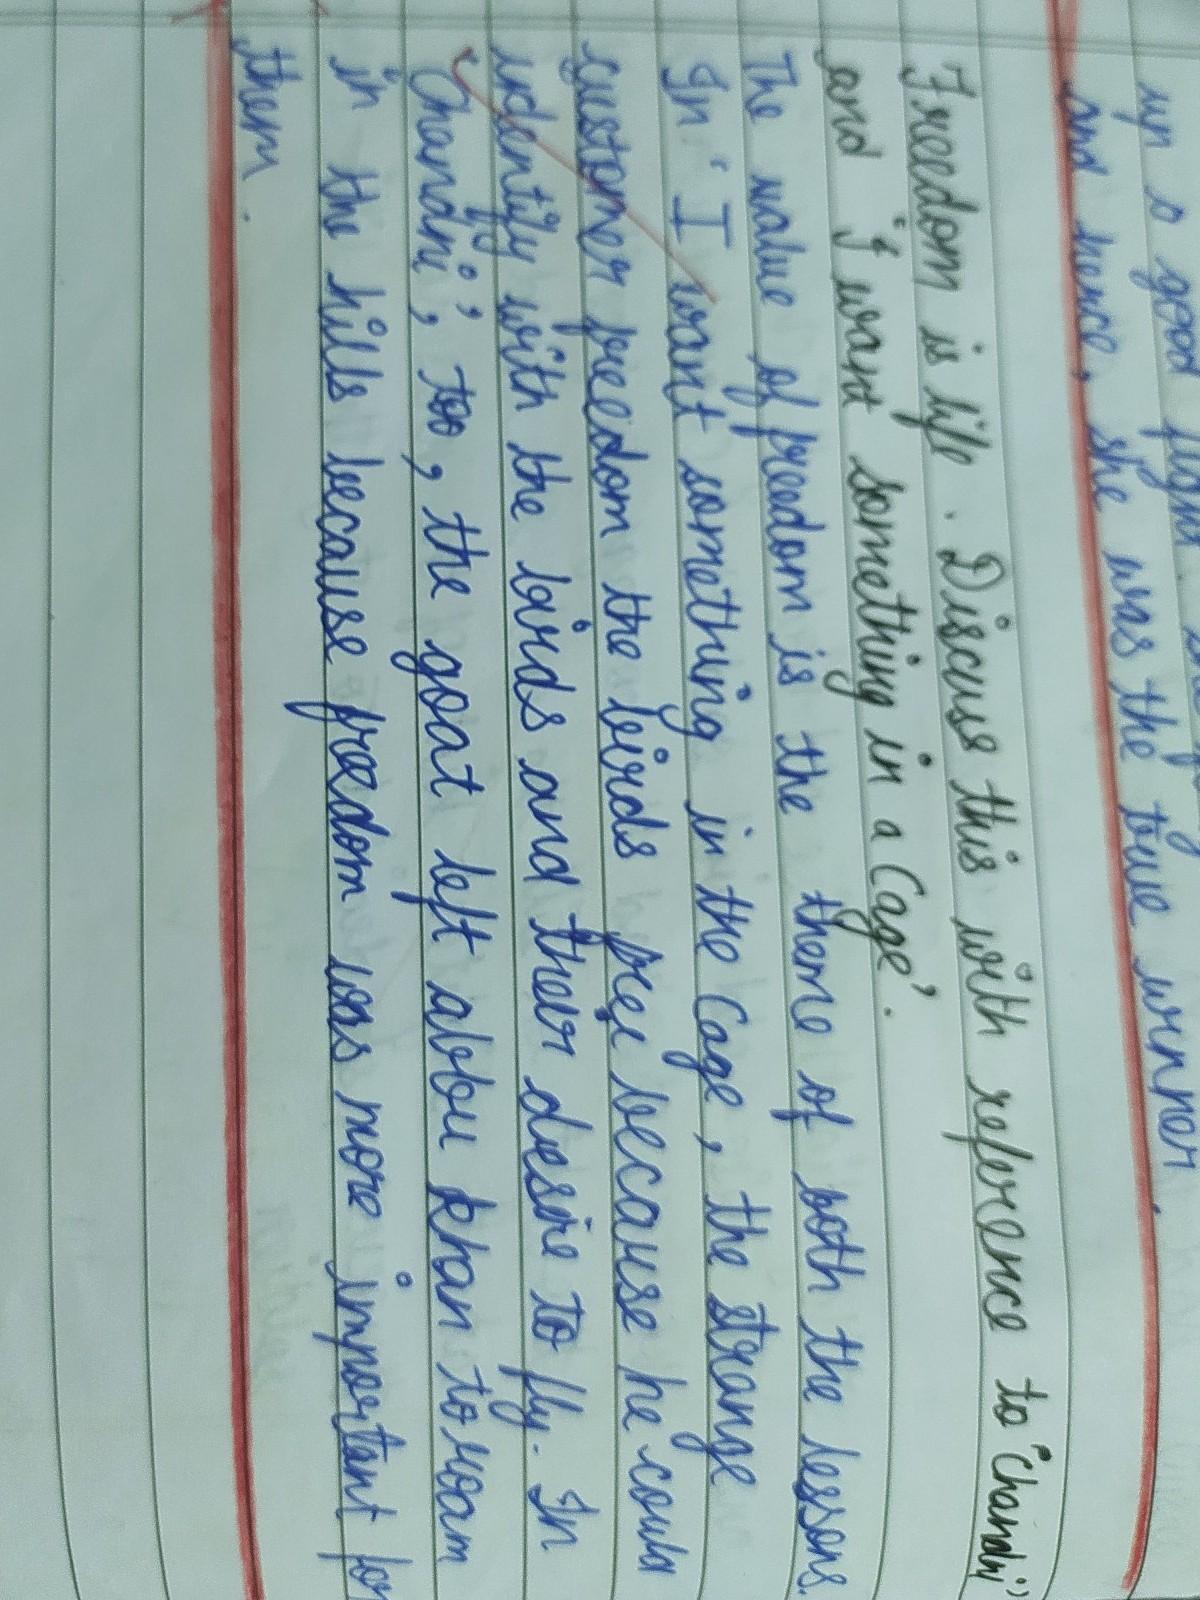 up a good fight.
and hence, she was the true winner.
Freedom is life. Discuss this with reference to "Chandni"
and 'I want something in a Cage'.
The value of freedom is the theme of both the lessons.
In 'I want something in the Cage, the strange
customer freedom the birds free because he could
identify with the birds and their desire to fly. In
'Chandni', too, the goat left abbu khan to roam
in the hills because freedom was more important for
them.